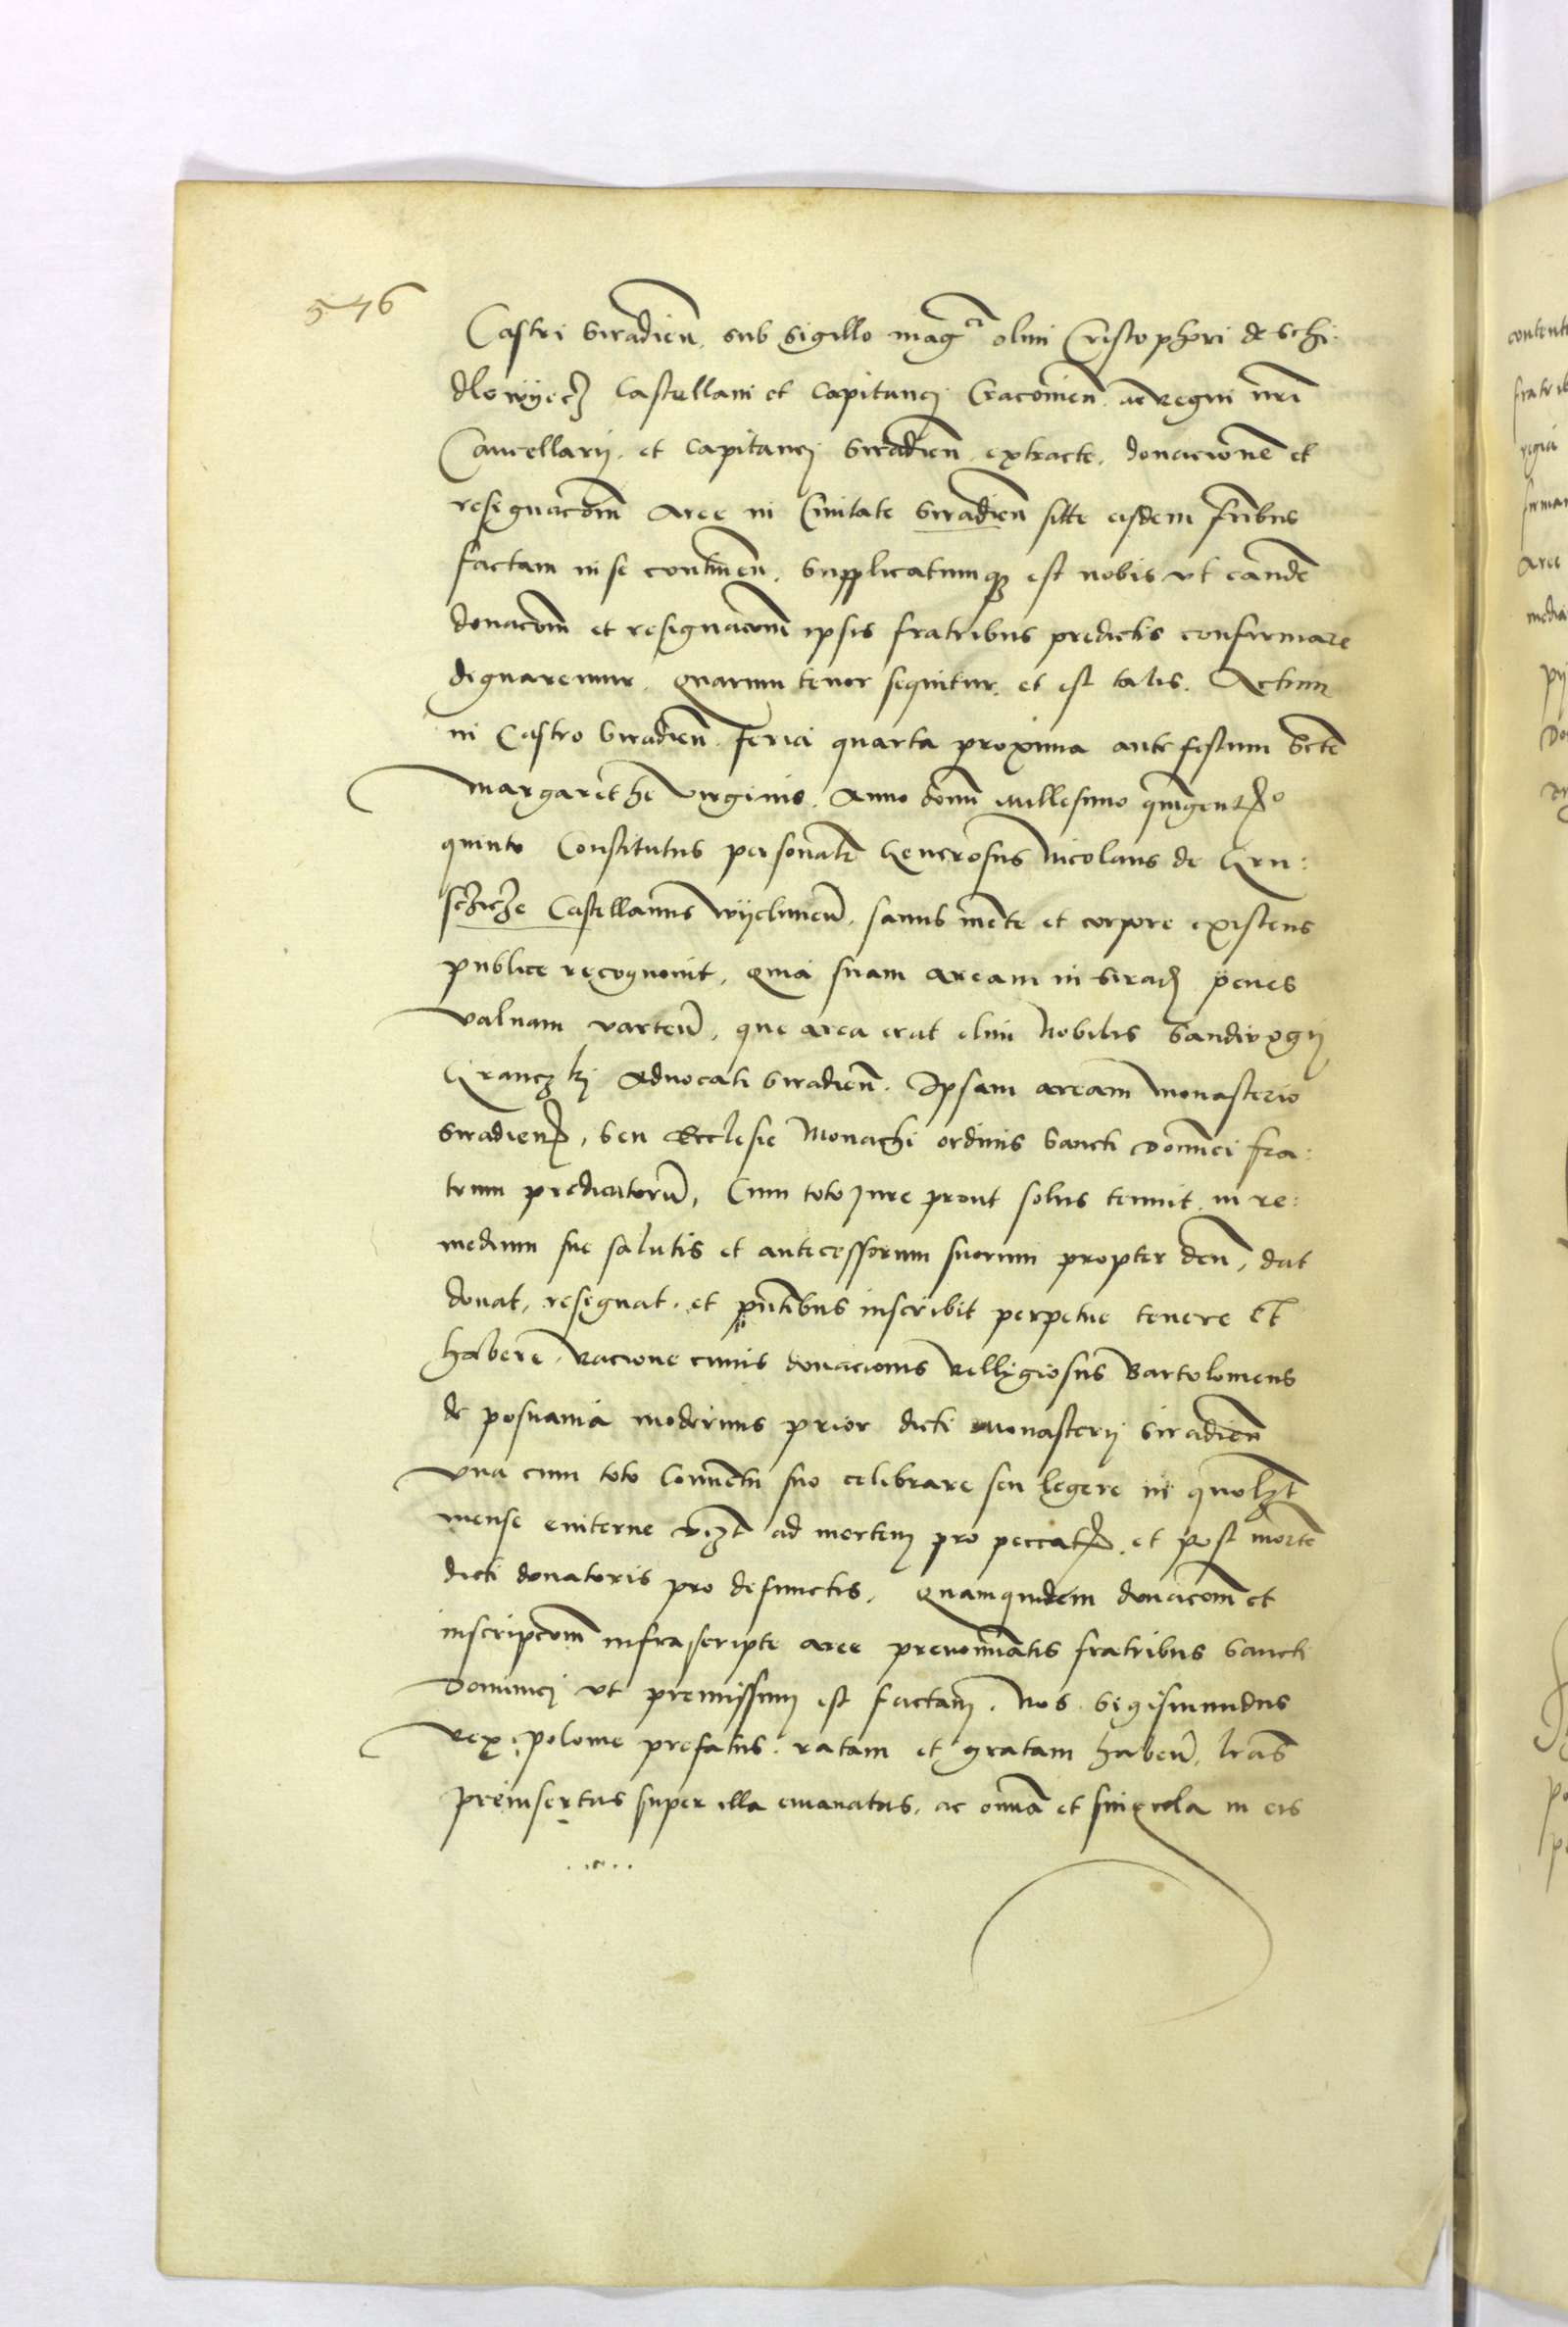 546
Castri Siradien̄. sub sigillo mag^ci olim Cristophori de Schi:
dlowyecz Castellani et Capitanej Cracouien̄. ac regni nr̄i
Cancellarij. et Capitanej Siradien̄. extracte. donacionē et
resignacōm̄ Aree in Ciuitate Siradien̄ sitte eisdem fr̄ibus
factam in se continen̄. Supplicatumq3 est nobis vt eandē
donacōm̄ et resignacōm̄ ipsis fratribus predictis confirmare
dignaremur. Quarum tenor sequitur. et est talis. Actum
in Castro Siradien̄. feria quarta proxima ante festum Sctē
Margarethe virginis. Anno domī millesimo quīngentꝭo
quinto Constitutus personalr̄ Generosus Nicolaus de Gru:
schczicze Castellanus wyelunen̄. sanus mēte et corpore existens
publice recognouit. quia suam aream in Sirad̄ penes
valuam varten̄. que area erat olim Nobilis Sandiuogij
Kranczkj Aduocati Siradien̄. Ipsam aream monasterio
Siradienꝭ, seu Ecclesie Monachi ordinis Sancti Dominici fra:
trum predicatorū, Cum toto Jure prout solus tenuit in re:
medium sue salutis et antecessorum suorum propter deū, dat
donat, resignat. et pn̄tibus inscribit perpetue tenere Et
habere. Racione cuius donacionis Relligiosus Bartolomeus
de posnania modernus prior dicti Monasterij Siradien̄
vna cum toto Conuentu suo celibrare seu legere in quolꝫt
mense euiterne vꝫt ad mortem pro peccatꝭ. et post mortē
dicti donatoris pro defunctis. Quamquidem donacōm̄ et
inscripcōm̄ infrascripte aree prenoīatis fratribus Sancti
Dominici vt premissum est factam. Nos Sigismundus
Rex polonie prefatus. ratam et gratam haben̄. lr̄as
preinsertas super illa emanatas. ac om̄ia et singula in eis